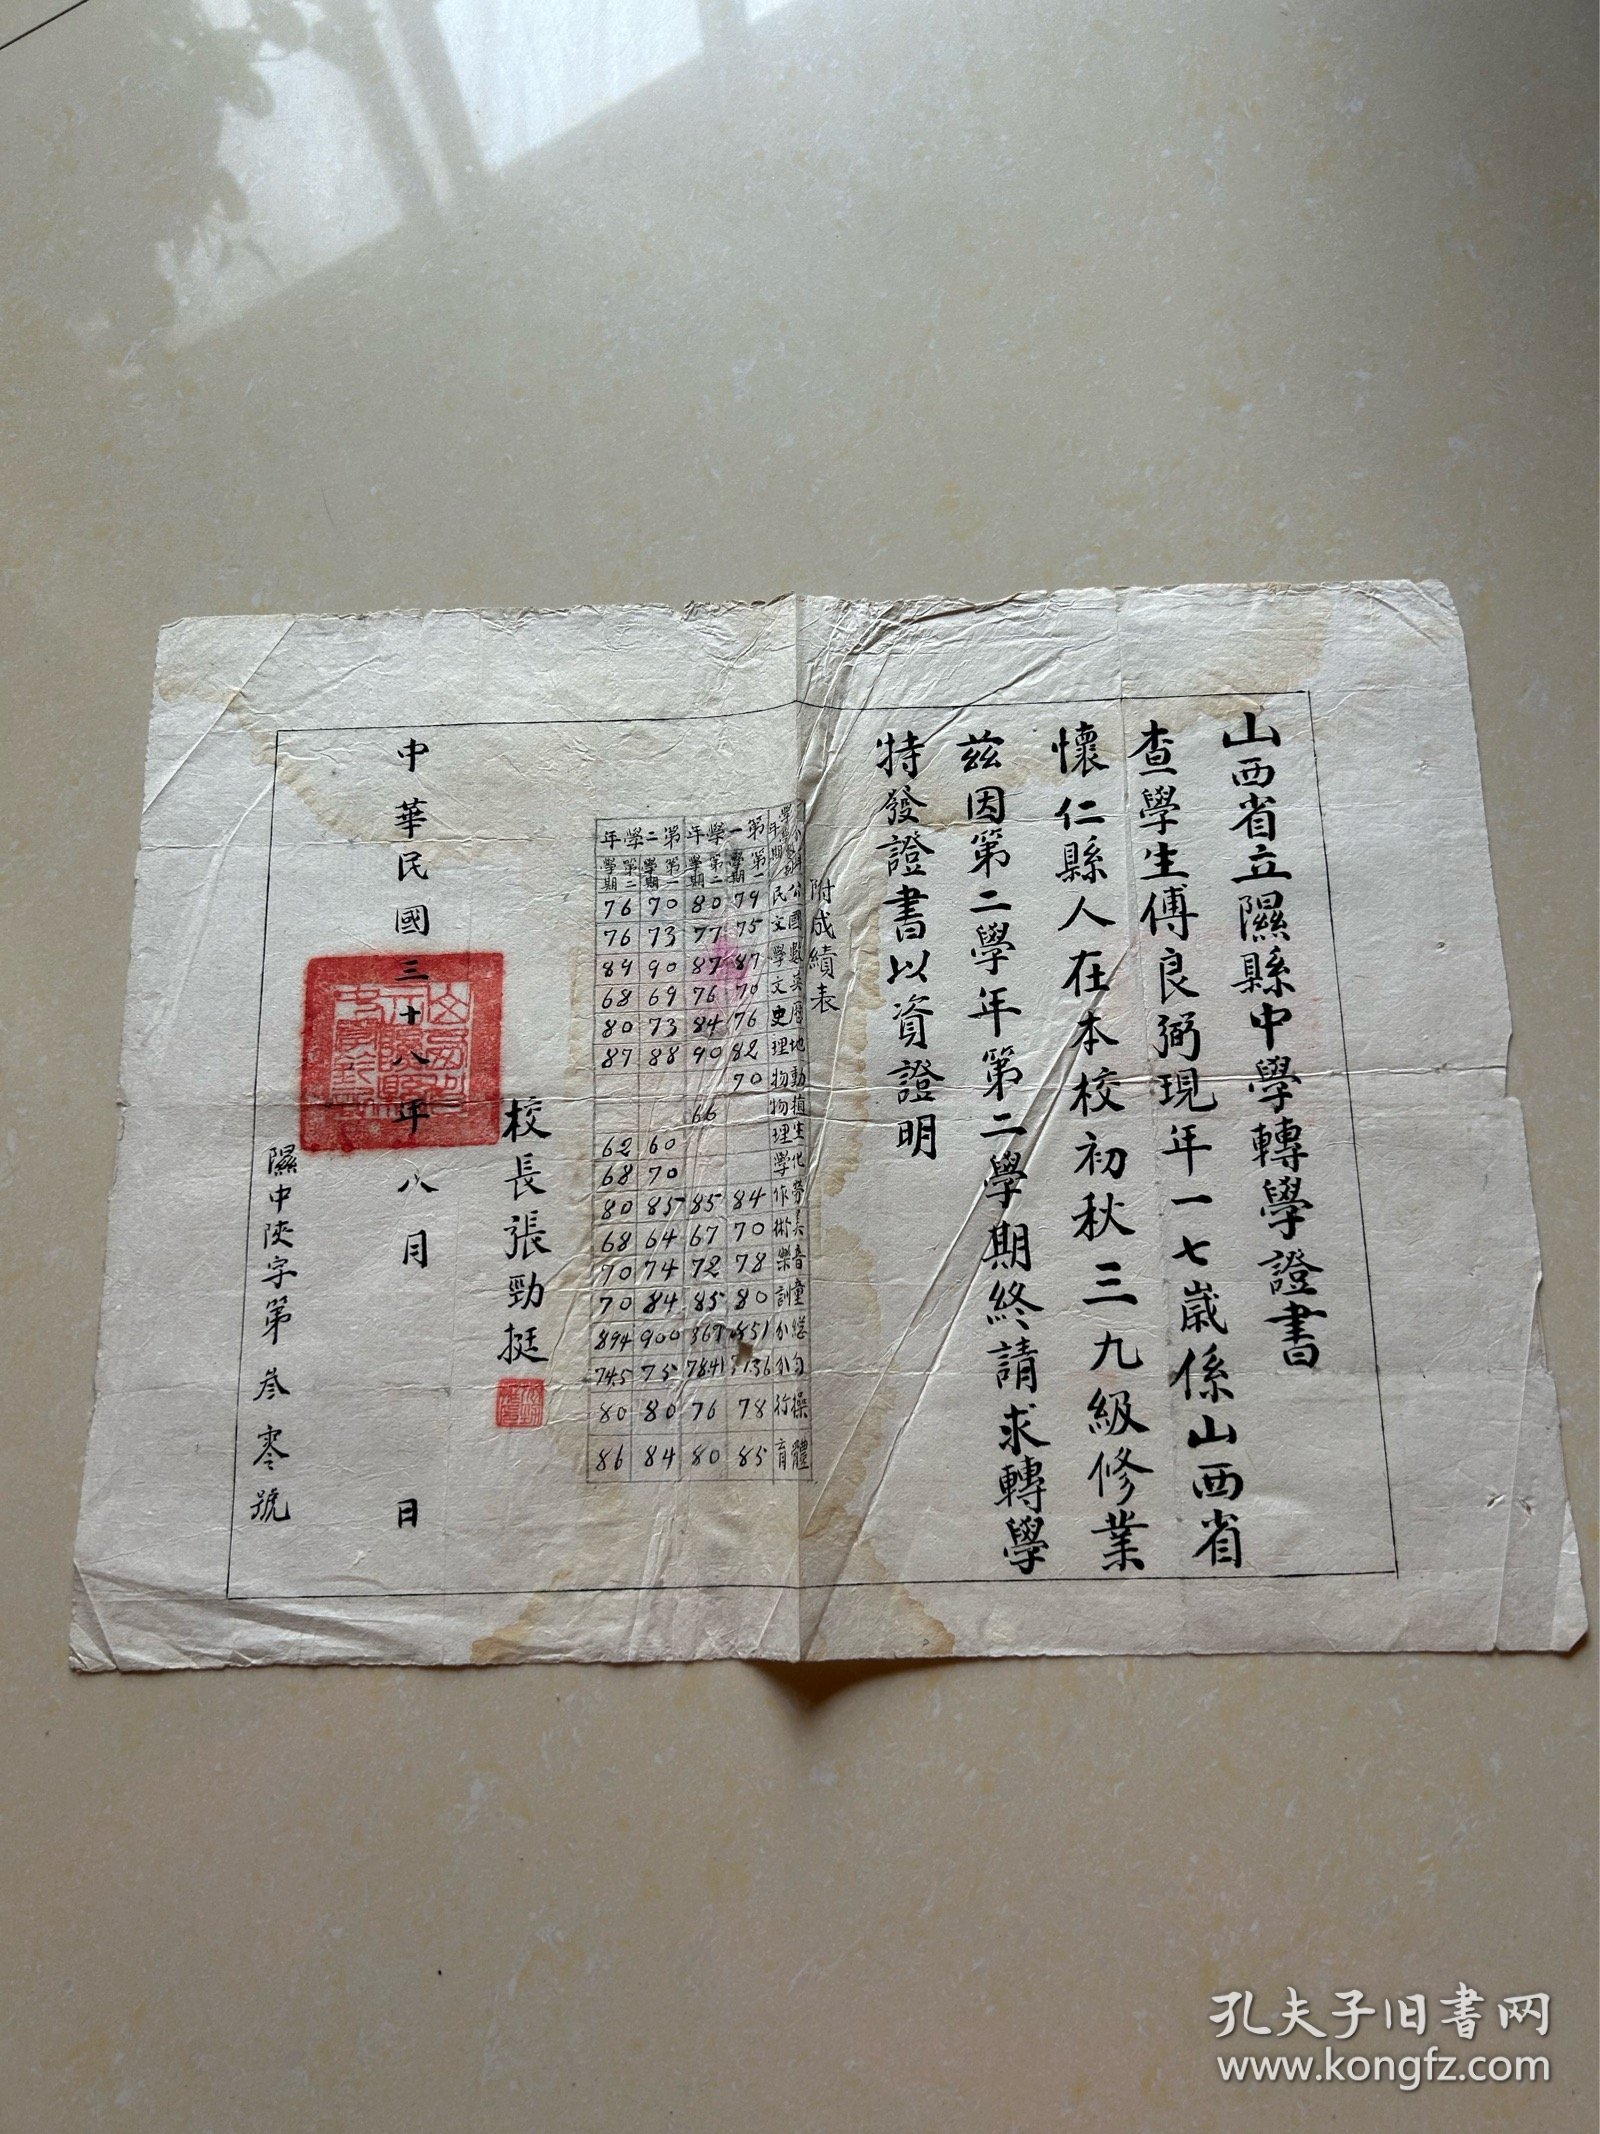 山西省立隰縣中學轉學證書
查學生傅良弼現年一七歲係山西省
懷仁縣人在本校初秋三九級修業
茲因第二學年第二學期終請求轉學
特發證書以資證明
附成績表
第一學年 第二學年
第一學期 第二學期 第一學期 第二學期
公民 79 80 70 76
國文 75 77 73 76
數學 87 87 90 89
英文 70 76 69 68
歷史 76 84 73 80
地理 82 90 88 87
動物 70
植物 66
生理 60 62
化學 70 68
勞作 84 85 85 80
美術 70 67 64 68
音樂 78 72 74 70
童訓 80 85 84 70
總分 851 869 900 894
匀分 78.41 75 74.5
操行 78 76 80 80
體育 85 80 84 86
校長張勁挺
中華民國三十八年八月 日
隰中陝字第叁零號
孔夫子旧书网
www.kongfz.com